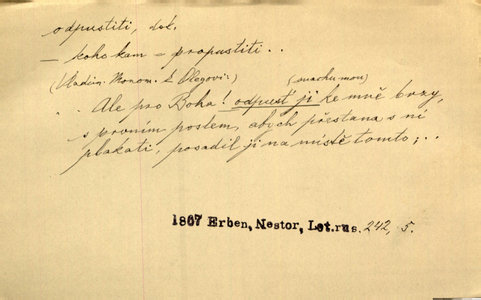 odpustiti, dok.
— koho kam = propustiti..
(Vladim. Monom. k Olegovi) (snachu mou)
.. Ale pro Boha! odpusť ji ke mně brzy,
s prvním poslem, abych přestana s ní
plakati, posadil ji na místě tomto;..
1867 Erben, Nestor, Let.rus. 242, 5.